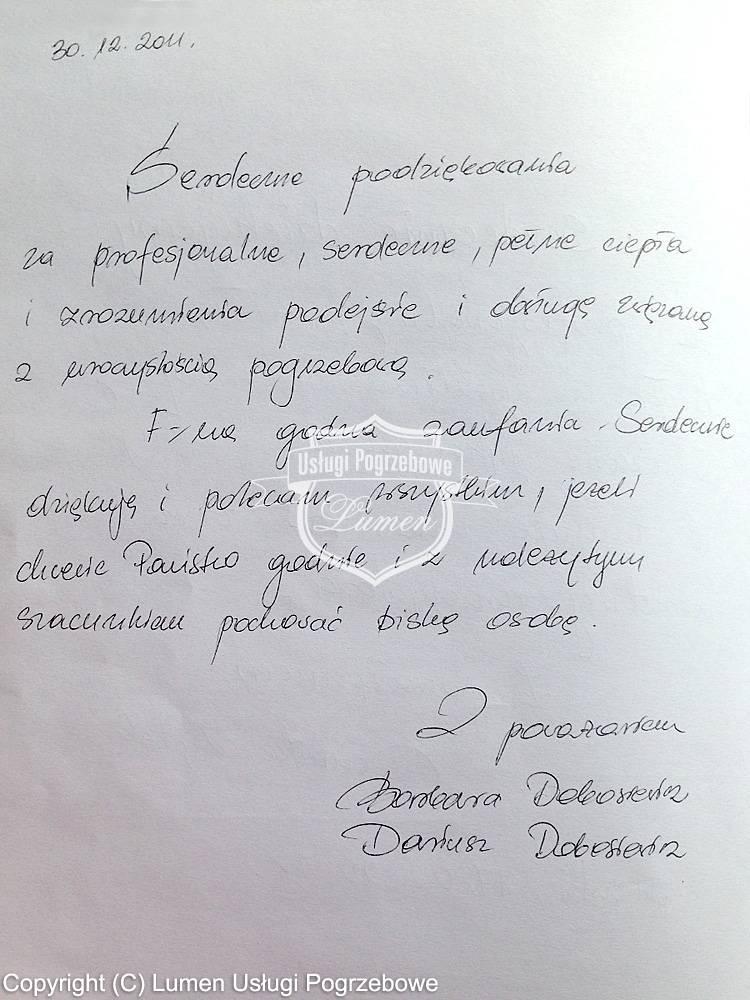 30.12.2011.
Serdeczne podziękowania
za profesjonalne, serdeczne, pełne ciepła
i zrozumienia podejście i obsługę związaną
z uroczystością pogrzebową.
F-ma godna zaufania. Serdecznie
dziękuję i polecam wszystkim, jeżeli
chcecie Państwo godnie i z należytym
szacunkiem pochować bliską osobę.
Z poważaniem
Barbara Dobosiewicz
Dariusz Dobosiewicz
Usługi Pogrzebowe
Lumen
Copyright (C) Lumen Usługi Pogrzebowe